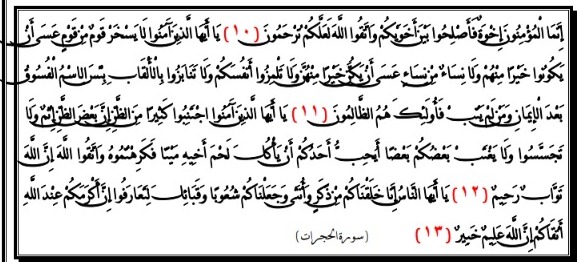 إِنَّمَا الْمُؤْمِنُونَ إِخْوَةٌ فَأَصْلِحُوا بَيْنَ أَخَوَيْكُمْ وَاتَّقُوا اللَّهَ لَعَلَّكُمْ تُرْحَمُونَ (١٠) يَا أَيُّهَا الَّذِينَ آمَنُوا لَا يَسْخَرْ قَوْمٌ مِنْ قَوْمٍ عَسَى أَنْ
يَكُونُوا خَيْرًا مِنْهُمْ وَلَا نِسَاءٌ مِنْ نِسَاءٍ عَسَى أَنْ يَكُنَّ خَيْرًا مِنْهُنَّ وَلَا تَلْمِزُوا أَنْفُسَكُمْ وَلَا تَنَابَزُوا بِالْأَلْقَابِ بِئْسَ الِاسْمُ الْفُسُوقُ
بَعْدَ الْإِيمَانِ وَمَنْ لَمْ يَتُبْ فَأُولَئِكَ هُمُ الظَّالِمُونَ (١١) يَا أَيُّهَا الَّذِينَ آمَنُوا اجْتَنِبُوا كَثِيرًا مِنَ الظَّنِّ إِنَّ بَعْضَ الظَّنِّ إِثْمٌ وَلَا
تَجَسَّسُوا وَلَا يَغْتَبْ بَعْضُكُمْ بَعْضًا أَيُحِبُّ أَحَدُكُمْ أَنْ يَأْكُلَ لَحْمَ أَخِيهِ مَيْتًا فَكَرِهْتُمُوهُ وَاتَّقُوا اللَّهَ إِنَّ اللَّهَ
تَوَّابٌ رَحِيمٌ (١٢) يَا أَيُّهَا النَّاسُ إِنَّا خَلَقْنَاكُمْ مِنْ ذَكَرٍ وَأُنْثَى وَجَعَلْنَاكُمْ شُعُوبًا وَقَبَائِلَ لِتَعَارَفُوا إِنَّ أَكْرَمَكُمْ عِنْدَ اللَّهِ
أَتْقَاكُمْ إِنَّ اللَّهَ عَلِيمٌ خَبِيرٌ (١٣) (سورة الحجرات)